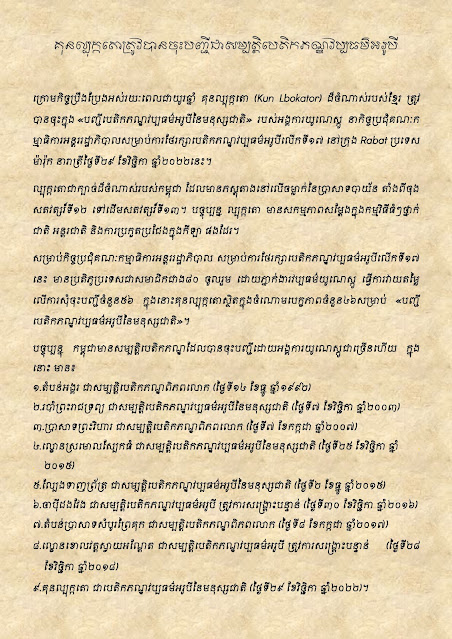 គុនល្បុក្កតោត្រូវបានចុះបញ្ជីជាសម្បត្តិបេតិកភណ្ឌវប្បធម៌អរូបី
ក្រោមកិច្ចប្រឹងប្រែងអស់រយៈពេលជាយូរឆ្នាំ គុនល្បុក្កតោ (Kun Lbokator) ដ៏ចំណាស់របស់ខ្មែរ ត្រូវ
បានចុះក្នុង «បញ្ជីបេតិកភណ្ឌវប្បធម៌អរូបីនៃមនុស្សជាតិ» របស់អង្គការយូណេស្កូ នាកិច្ចប្រជុំគណៈក
ម្មាធិការអន្តររដ្ឋាភិបាលសម្រាប់ការថែរក្សាបេតិកភណ្ឌវប្បធម៌អរូបីលើកទី១៧ នៅក្រុង Rabat ប្រទេស
ម៉ារ៉ុក នារាត្រីថ្ងៃទី២៩ ខែវិច្ឆិកា ឆ្នាំ២០២២នេះ។
ល្បុក្កតោជាក្បាច់ដ៏ចំណាស់របស់កម្ពុជា ដែលមានភស្តុតាងនៅលើចម្លាក់នៃប្រាសាទបាយ័ន តាំងពីចុង
សតវត្សរ៍ទី១២ ទៅដើមសតវត្សរ៍ទី១៣។ បច្ចុប្បន្ន ល្បុក្កតោ មានសកម្មភាពសម្តែងក្នុងកម្មវិធីធំៗថ្នាក់
ជាតិ អន្តរជាតិ និងការប្រកួតប្រជែងក្នុងកីឡា ផងដែរ។
សម្រាប់កិច្ចប្រជុំគណៈកម្មាធិការអន្តររដ្ឋាភិបាល សម្រាប់ការថែរក្សាបេតិកភណ្ឌវប្បធម៌អរូបីលើកទី១៧
នេះ មានប្រតិភូប្រទេសជាសមាជិកជាង៨០ ចូលរួម ដោយភ្នាក់ងារវប្បធម៌យូណេស្កូ ធ្វើការវាយតម្លៃ
លើការសុំចុះបញ្ជីចំនួន៥៦ ក្នុងនោះគុនល្បុក្កតោស្ថិតក្នុងចំណោមបេក្ខភាពចំនួន៤៦សម្រាប់ «បញ្ជី
បេតិកភណ្ឌវប្បធម៌អរូបីនៃមនុស្សជាតិ»។
បច្ចុប្បន្ន កម្ពុជាមានសម្បត្តិបេតិកភណ្ឌដែលបានចុះបញ្ជីដោយអង្គការយូណេស្កូជាច្រើនហើយ ក្នុង
នោះ មាន៖
១.តំបន់អង្គរ ជាសម្បត្តិបេតិកភណ្ឌពិភពលោក (ថ្ងៃទី១៤ ខែធ្នូ ឆ្នាំ១៩៩២)
២.របាំព្រះរាជទ្រព្យ ជាសម្បត្តិបេតិកភណ្ឌវប្បធម៌អរូបីនៃមនុស្សជាតិ (ថ្ងៃទី៧ ខែវិច្ឆិកា ឆ្នាំ២០០៣)
៣.ប្រាសាទព្រះវិហារ ជាសម្បត្តិបេតិកភណ្ឌពិភពលោក (ថ្ងៃទី៧ ខែកក្កដា ឆ្នាំ២០០៧)
៤.ល្ខោនស្រមោលស្បែកធំ ជាសម្បត្តិបេតិកភណ្ឌវប្បធម៌អរូបីនៃមនុស្សជាតិ (ថ្ងៃទី២៥ ខែវិច្ឆិកា ឆ្នាំ
២០១៥)
៥.ល្បែងទាញព្រ័ត្រ ជាសម្បត្តិបេតិកភណ្ឌវប្បធម៌អរូបីនៃមនុស្សជាតិ (ថ្ងៃទី២ ខែធ្នូ ឆ្នាំ២០១៥)
៦.ចាប៉ីដងវែង ជាសម្បត្តិបេតិកភណ្ឌវប្បធម៌អរូបី ត្រូវការសង្គ្រោះបន្ទាន់ (ថ្ងៃទី៣០ ខែវិច្ឆិកា ឆ្នាំ២០១៦)
៧.តំបន់ប្រាសាទសំបូរព្រៃគុក ជាសម្បត្តិបេតិកភណ្ឌពិភពលោក (ថ្ងៃទី៨ ខែកក្កដា ឆ្នាំ២០១៧)
៨.ល្ខោនខោលវត្តស្វាយអណ្តែត ជាសម្បត្តិបេតិកភណ្ឌវប្បធម៌អរូបី ត្រូវការសង្គ្រោះបន្ទាន់ (ថ្ងៃទី២៨
ខែវិច្ឆិកា ឆ្នាំ២០១៨)
៩.គុនល្បុក្កតោ ជាបេតិកភណ្ឌវប្បធម៌អរូបីនៃមនុស្សជាតិ (ថ្ងៃទី២៩ ខែវិច្ឆិកា ឆ្នាំ២០២២)។